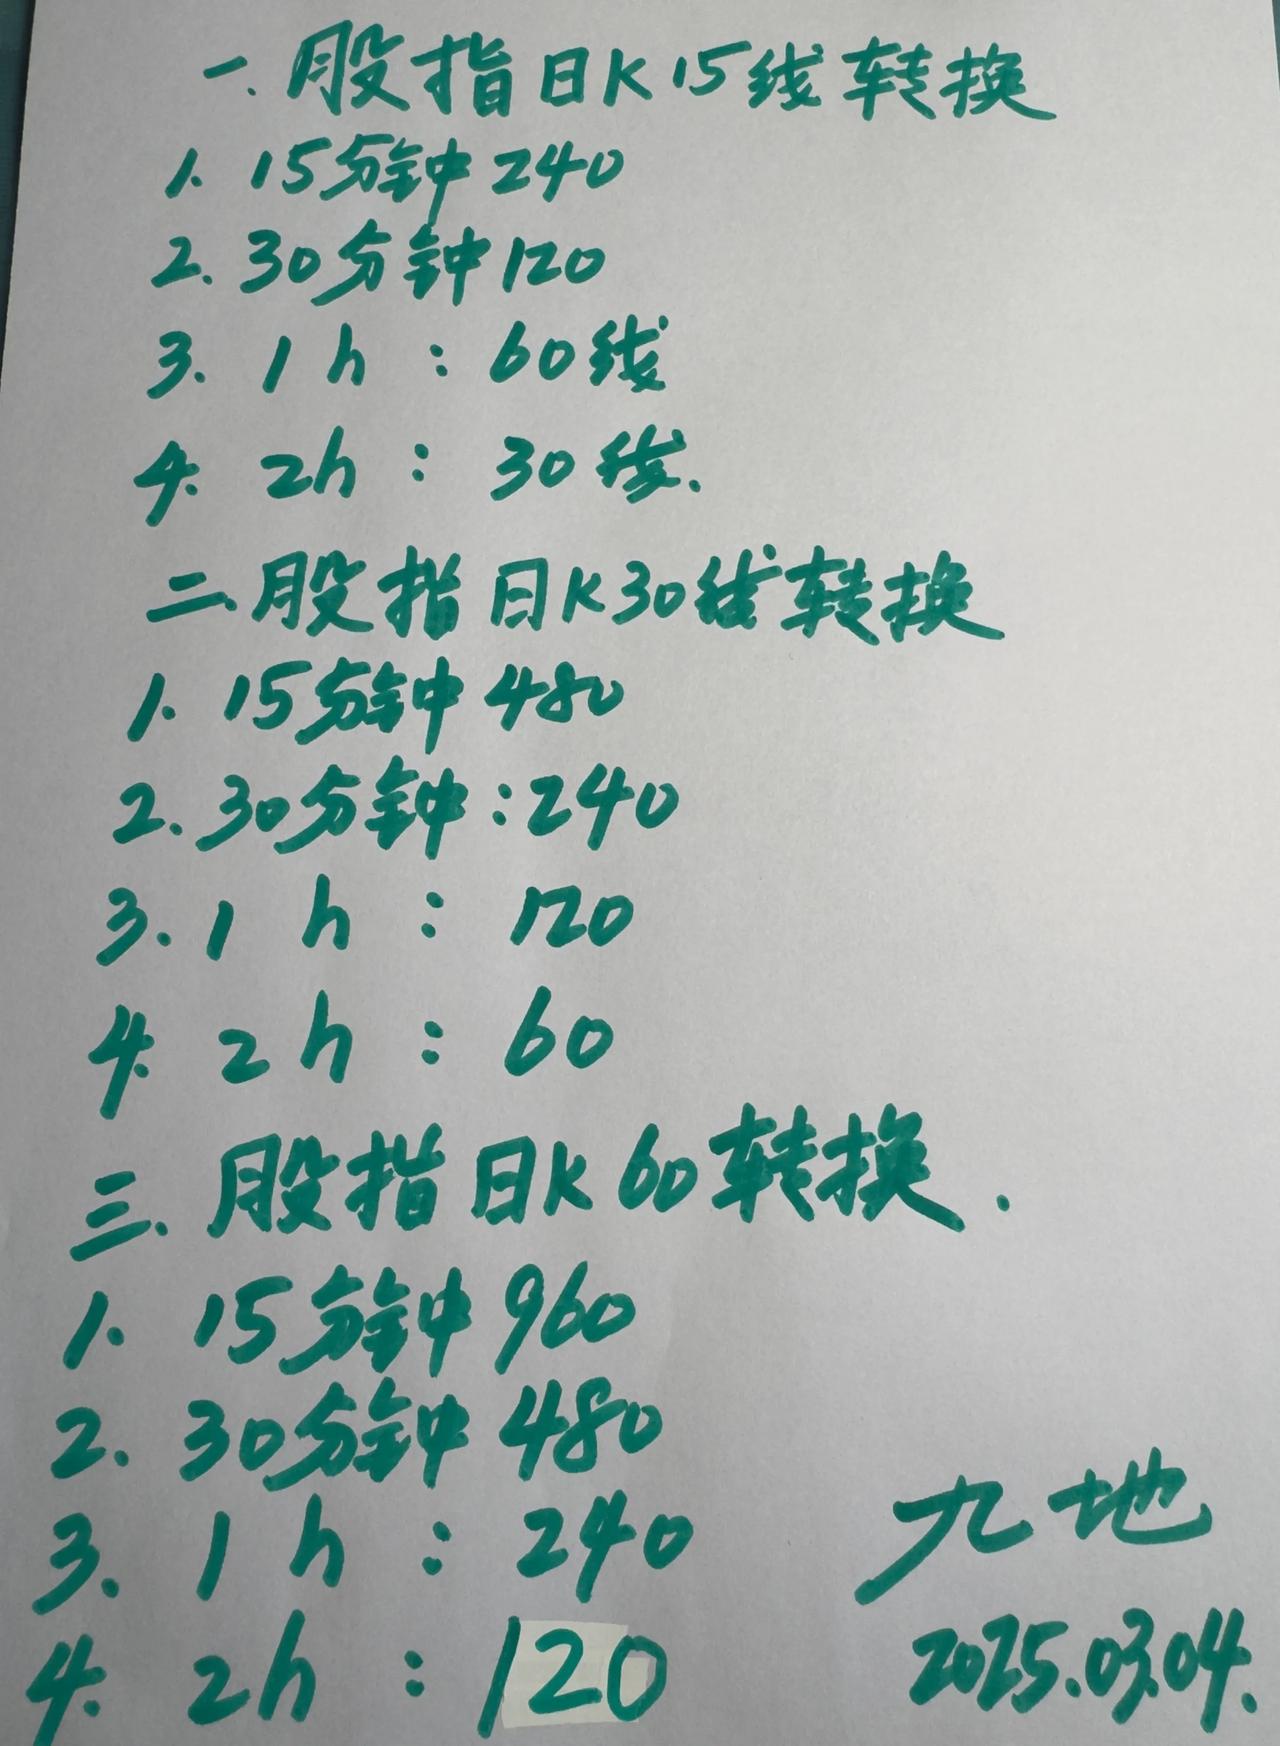 一.股指日K15线转换
1. 15分钟240
2. 30分钟120
3. 1h:60线
4. 2h:30线.
二.股指日K30线转换
1. 15分钟480
2. 30分钟:240
3. 1h:120
4. 2h:60
三.股指日K60转换.
1. 15分钟960
2. 30分钟480
3. 1h:240
4. 2h:120
九地
2025.03.04.